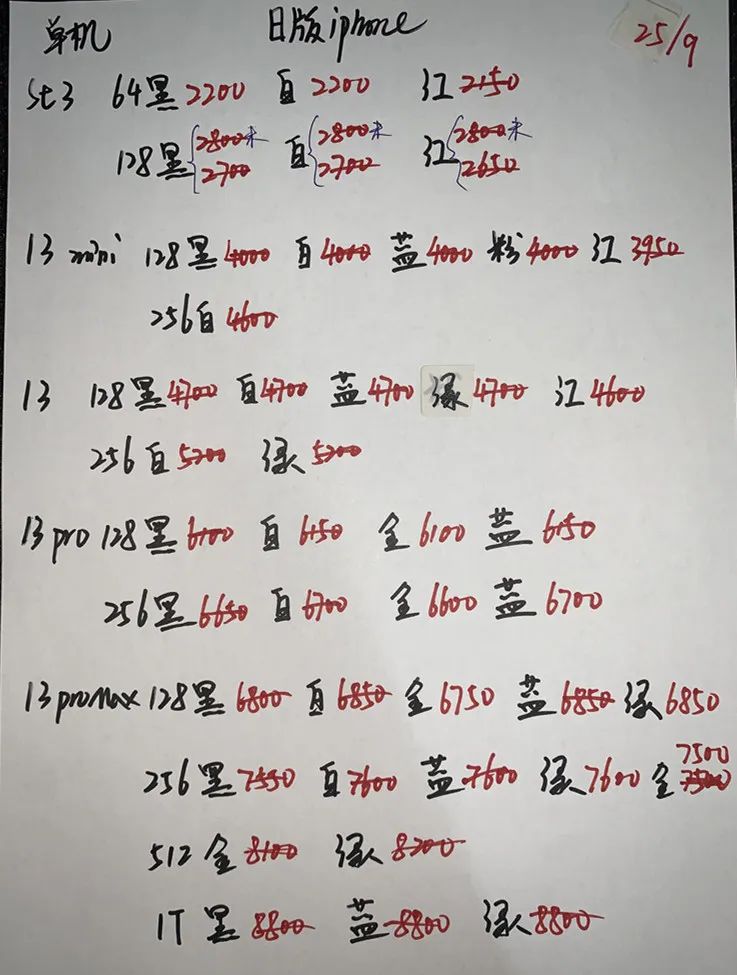 单机 日版iphone 25/9
se3 64黑2200 白2200 红2150
128黑{2800未 白{2800未 红{2800未
2700 2700 2650
13 mini 128黑4000 白4000 蓝4000 粉4000 红3950
256白4600
13 128黑4700 白4700 蓝4700 绿4700 红4600
256白5200 绿5200
13pro 128黑6100 白6150 金6100 蓝6150
256黑6650 白6700 金6600 蓝6700
13proMax 128黑6800 白6850 金6750 蓝6850 绿6850
256黑7550 白7600 蓝7600 绿7600 金7500
7500
512金8100 绿8200
1T黑8800 蓝8800 绿8800